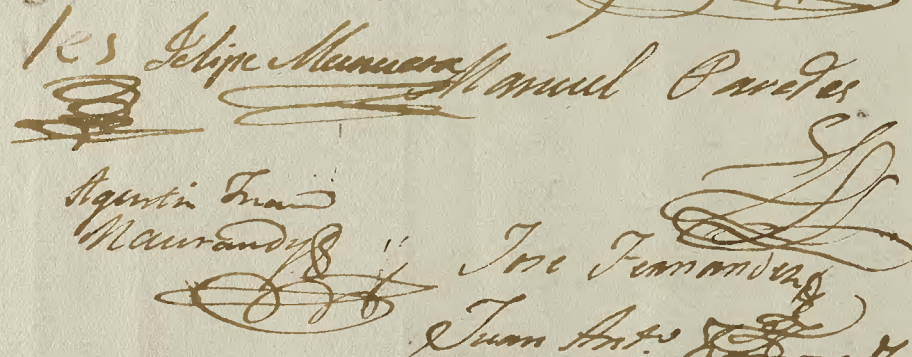 les Felipe Manuel Paredes
Agustin Juan
Maurandy
Jose Fernandez
Juan Ant.º